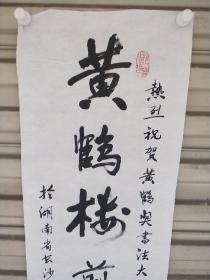 热烈祝贺黄鹤楼书法大
黄鹤楼
於湖南省长沙